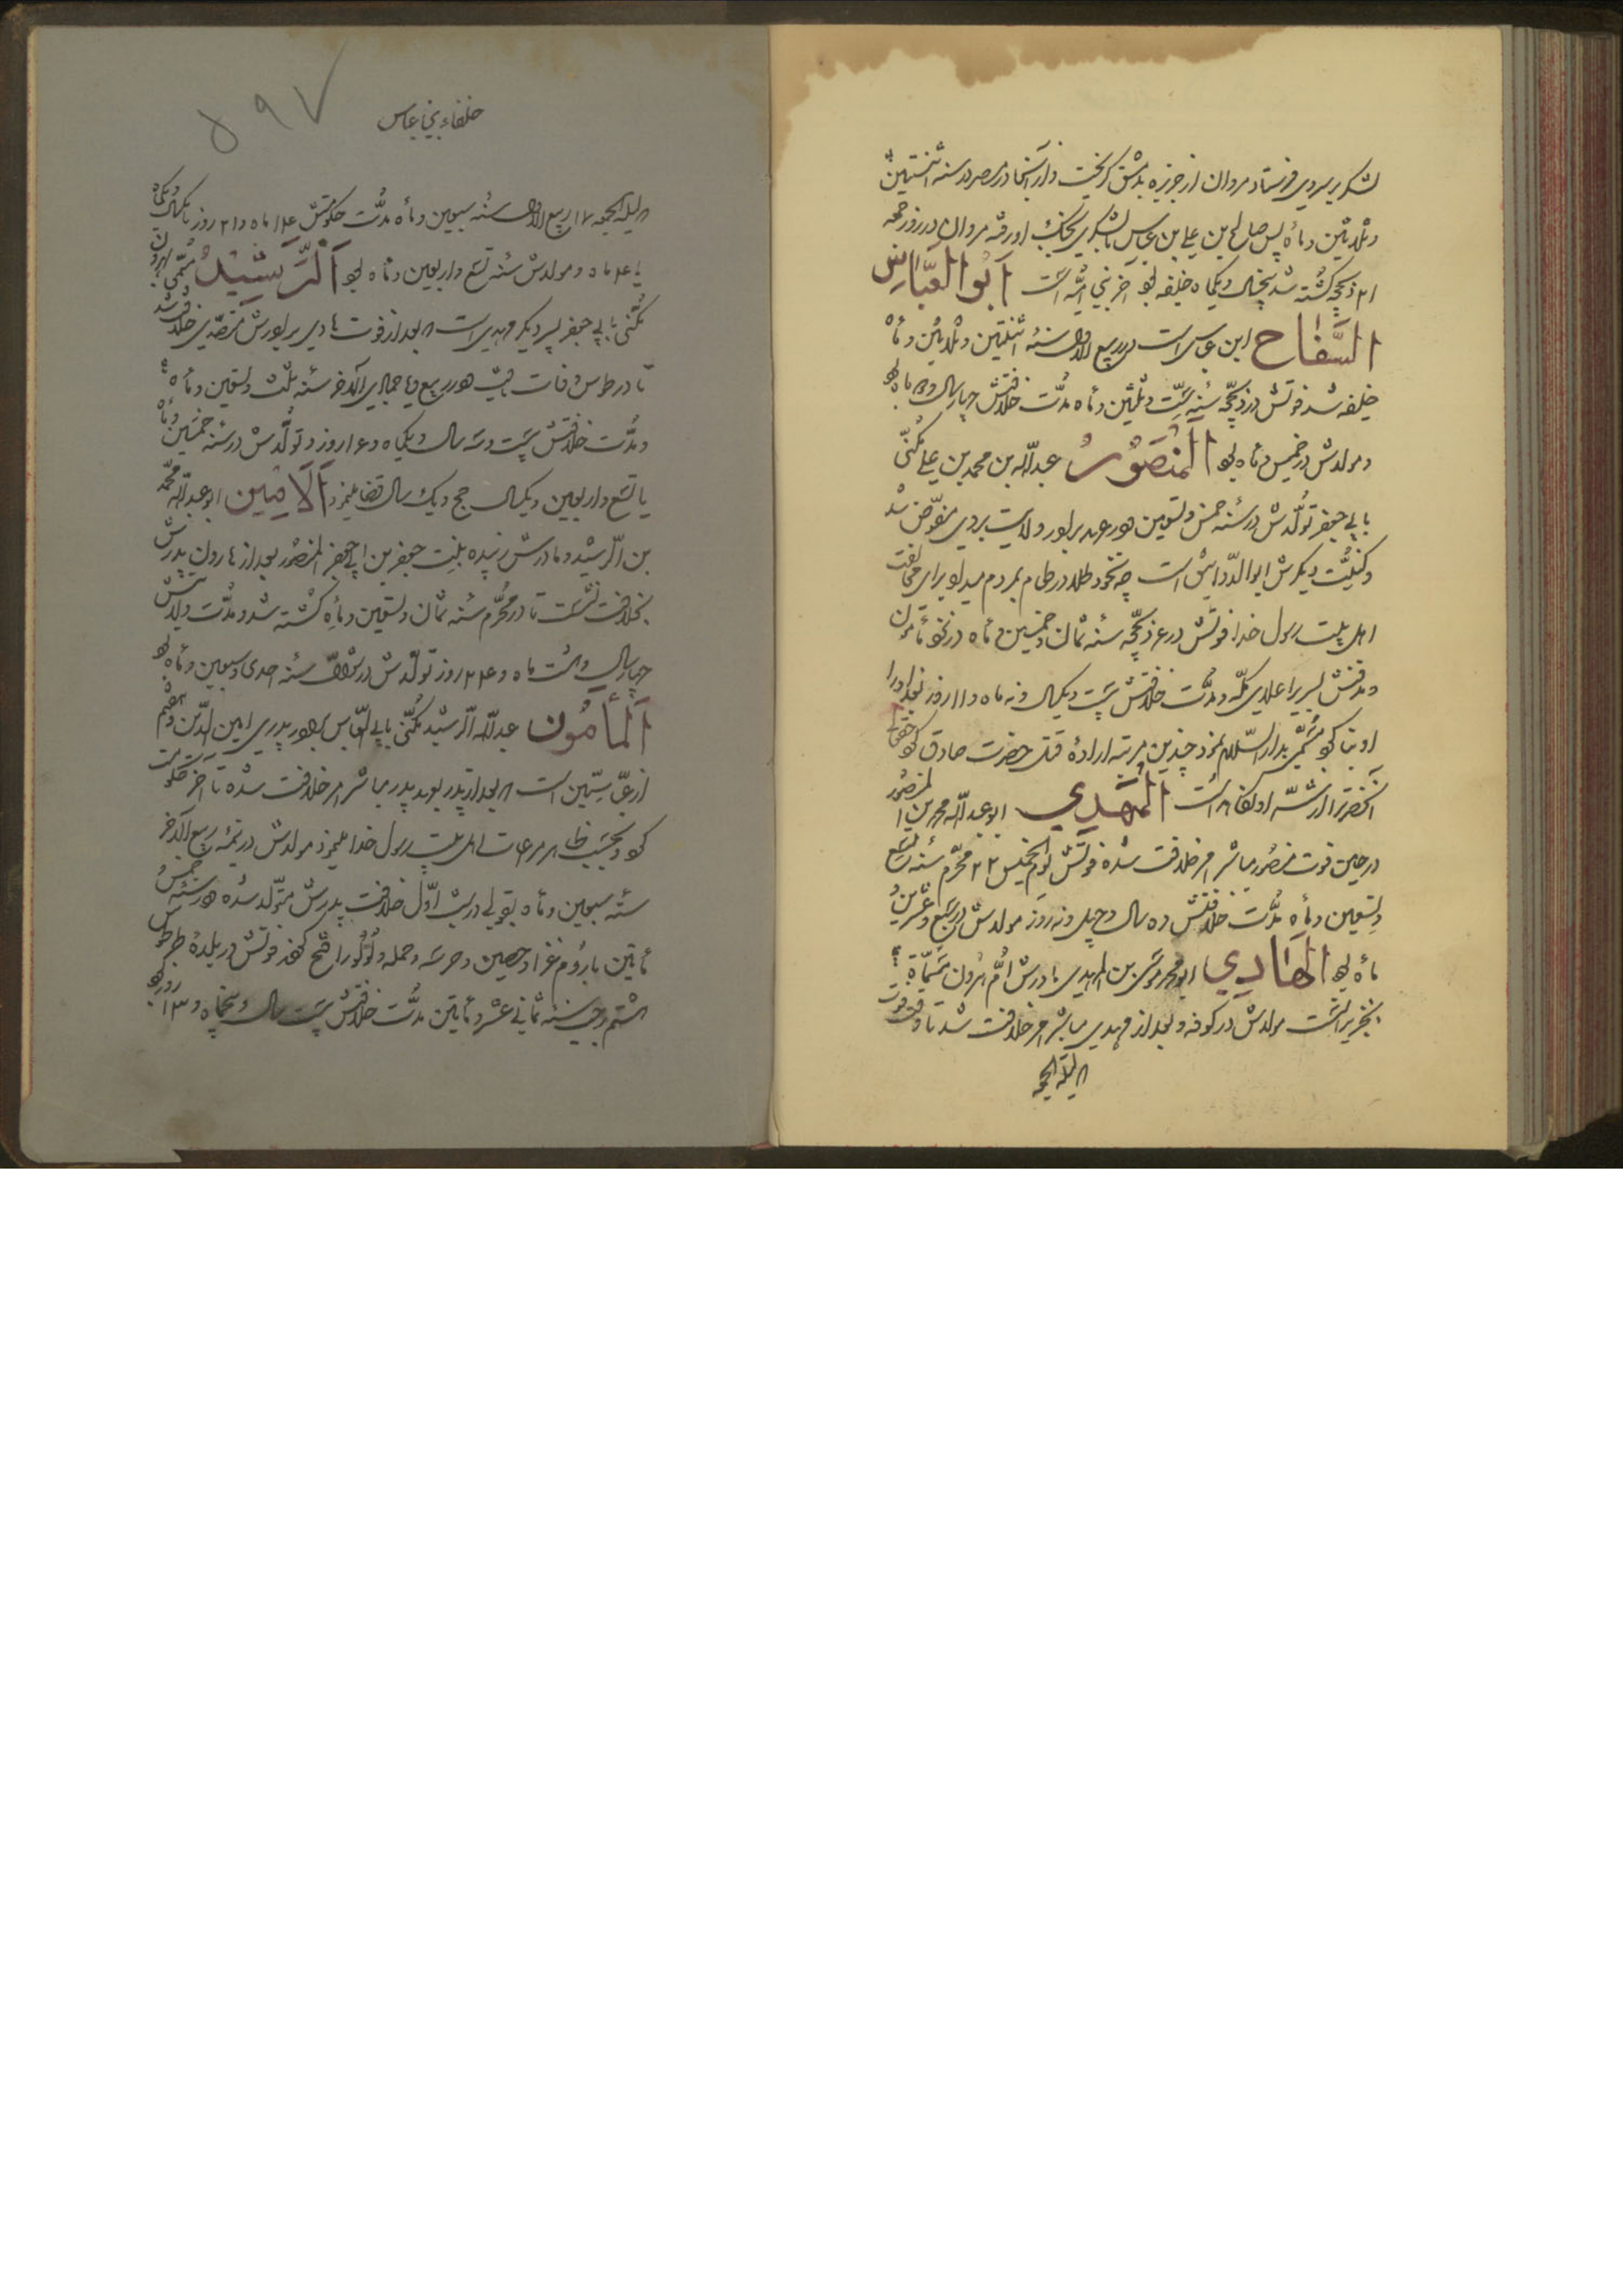 لشکر بر سر وی فرستاد مروان از جزیره بدمشق گریخت و از آنجا در مصر در سنه اثنتین
و ثلاثین و مأه پس صالح بن علی بن عباس با لشکری بجنگ او رفته مروان در روز جمعه
۲۱ ذیحجه کشته شد پنجسال و یکماه خلیفه بود آخر بنی امیّه است اَبُوالعَبّاسِ
السَّفّاح ابن عباس است در ربیع الاول سنه اثنتین و ثلاثین و مأه
خلیفه شد فوتش در ذیحجّه سنه ستّ و ثلثین و مأه مدّت خلافتش چهار سال و ماه بود
و مولدش در خمس و مأه بود المَنصُورُ عبداللّه بن محمد بن علی مکنّی
بابی جعفر تولّدش در سنه خمس و تسعین در عهد برادر ولایت بر وی مفوّض شد
و کنیّت دیگرش ابوالدّوانیق است
اهل بیت رسول خدا فوتش در ذیحجّه سنه ثمان و خمسین و مأه
و مدفنش اعلای مکّه و مدّت خلافتش بیست و یکسال و نه ماه و ۱۱ روز بغداد را
او بنا کرد مسمّی بدارالسّلام نمود چندین مرتبه اراده قتل حضرت صادق کرد
آنحضرت را المَهدِی ابوعبداللّه محمد بن المنصور
در حین فوت منصور مباشر امر خلافت شده فوتش یوم الخمیس ۲۲ محرّم سنه تسع
و تسعین و مأه مدّت خلافتش ده سال و چهل و نه روز مولدش در سبع و عشرین و
مأه بود الهَادِی ابو محمد موسی بن المهدی مادرش امّ هرون مسمّاة بـ
بخیزران است مولدش در کوفه و بعد از مهدی مباشر امر خلافت شد تا وقت فوت
در لیلة الجمعه
خلفاء بنی عباس
۵۹۷
در لیلة الجمعه ۱۷ ربیع الاول سنه سبعین و مأه مدّت حکومتش ۱۴ ماه و ۲۱ روز یا یکسال و یکماه
یا ۱۴ ماه و مولدش سنه تسع و اربعین و مأه بود اَلرَّشِیدُ مسمّی بهرون
مکنّی بابی جعفر پسر دیگر مهدی است بعد از فوت هادی برادرش متصدّی خلافت شد
تا در طوس وفات یافت در جمادی الآخر سنه ثلث و تسعین و مأه
و مدّت خلافتش بیست و سه سال و یکماه و ۱۶ روز و تولّدش در سنه خمسین و مأه
یا تسع و اربعین و یکسال حج و یک سال غزا مینمود اَلاَمِین ابوعبداللّه محمّد
بن الرشید و مادرش زبیده بنت جعفر بن ابی جعفر المنصور بعد از هارون پدرش
بخلافت نشست تا در محرّم سنه ثمان و تسعین و مأه کشته شد و مدّت ولایتش
چهار سال و هشت ماه و ۲۴ روز تولّدش در شوال سنه احدی و سبعین و مأه بود
اَلمَأمُون عبداللّه الرشید مکنّی بابی العبّاس برادر پدری امین الدّین و هفتم
از عبّاسیّین است بعد از پدر مباشر امر خلافت شده تا آخر حکومت
کرد و بحسب ظاهر مراعات اهل بیت رسول خدا مینمود مولدش در نیمه ربیع الآخر
سنه سبعین و مأه بقولی در شب اوّل خلافت پدرش متولّد شده در سنه خمس و
مأتین با روم غزا و حصین و حرسه و حمله و لؤلؤ را فتح کرد فوتش در بلده طرطوس
هشتم رجب سنه ثمانی عشر و مأتین مدّت خلافتش بیست سال و پنجماه و ۱۳ روز بود